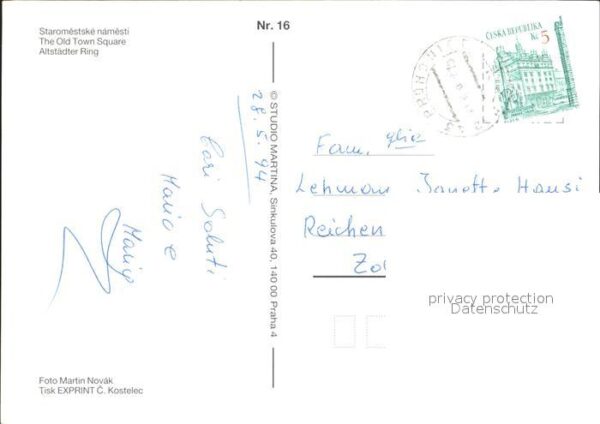 Staroměstské náměstí
The Old Town Square
Altstädter Ring
Nr. 16
ČESKÁ REPUBLIKA
Kč 5
PRŮHONICE
© STUDIO MARTINA, Sinkulova 40, 140 00 Praha 4
28.5.94
Cari Saluti
Mario e
Fam.
Lehmann Hansi
Reichen
Zol
privacy protection
Datenschutz
Foto Martin Novák
Tisk EXPRINT Č. Kostelec